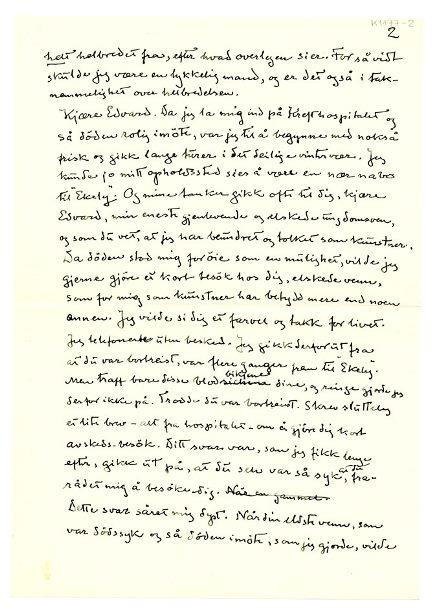 K1777-2
2
helt helbredet fra, efter hvad overlegen sier. For så vidt
skulde jeg være en lykkelig mand, og er det også i tak-
nemmelighet over helbredelsen.
Kjære Edvard. Da jeg la mig ind på hospitalet og
så døden rolig imøte, var jeg til å begynne med nokså
frisk og gikk lange turer i det deilige vintervær. Jeg
kunde jo mitt opholdssted sies å være en nær nabo
til "Ekely". Og mine tanker gikk ofte til dig, kjære
Edvard, min eneste gjenlevende og elskede ungdomsven,
og som du vet, at jeg har beundret og tolket som kunstner.
Da døden stod mig for øie som en mulighet, vilde jeg
gjerne gjøre et kort besøk hos dig, elskede venn,
som for mig som kunstner har betydd mere end noen
annen. Jeg vilde si dig et farvel og takk for livet.
Jeg telefonerte uten besked. Jeg gikk derfor ut fra
at du var bortreist, var flere ganger frem til "Ekely"
Men traff bare disse blodhundene dine, og ringe gjorde jeg
derfor ikke på. Trodde du var bortreist. Skrev sluttelig
et lite brev - alt fra hospitalet - om å gjøre dig kort
avskeds-besøk. Ditt svar var, som jeg fikk lenge
efter, gikk ut på, at du selv var så syk, at du fra-
rådet mig å besøke dig. Når en gammel
Dette svar såret mig dypt. Når din eldste venn, som
var dødssyk og så døden imøte, som jeg gjorde, vilde